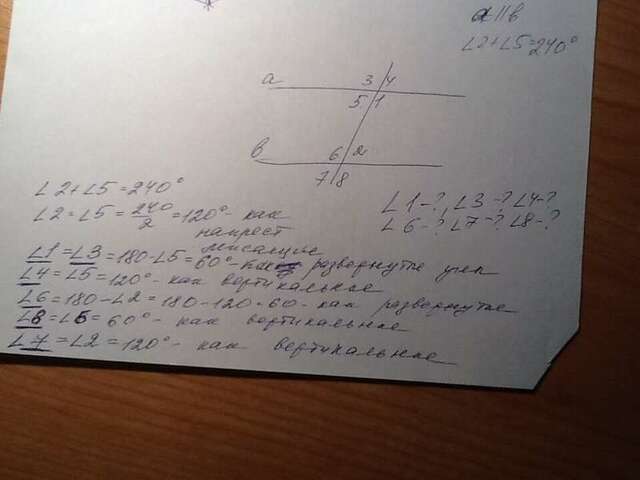 a||в
∠2+∠5=240°
a
3 4
5 1
в
6 2
7 8
∠2+∠5=240°
∠2=∠5=240/2=120°- как
накрест
лежащие
∠1-?, ∠3-? ∠4-?
∠6-? ∠7-? ∠8-?
∠1=∠3=180-∠5=60°- как развернутые угл
∠4=∠5=120°- как вертикальные
∠6=180-∠2=180-120=60- как развернутые
∠8=∠6=60°- как вертикальные
∠7=∠2=120°- как вертикальные